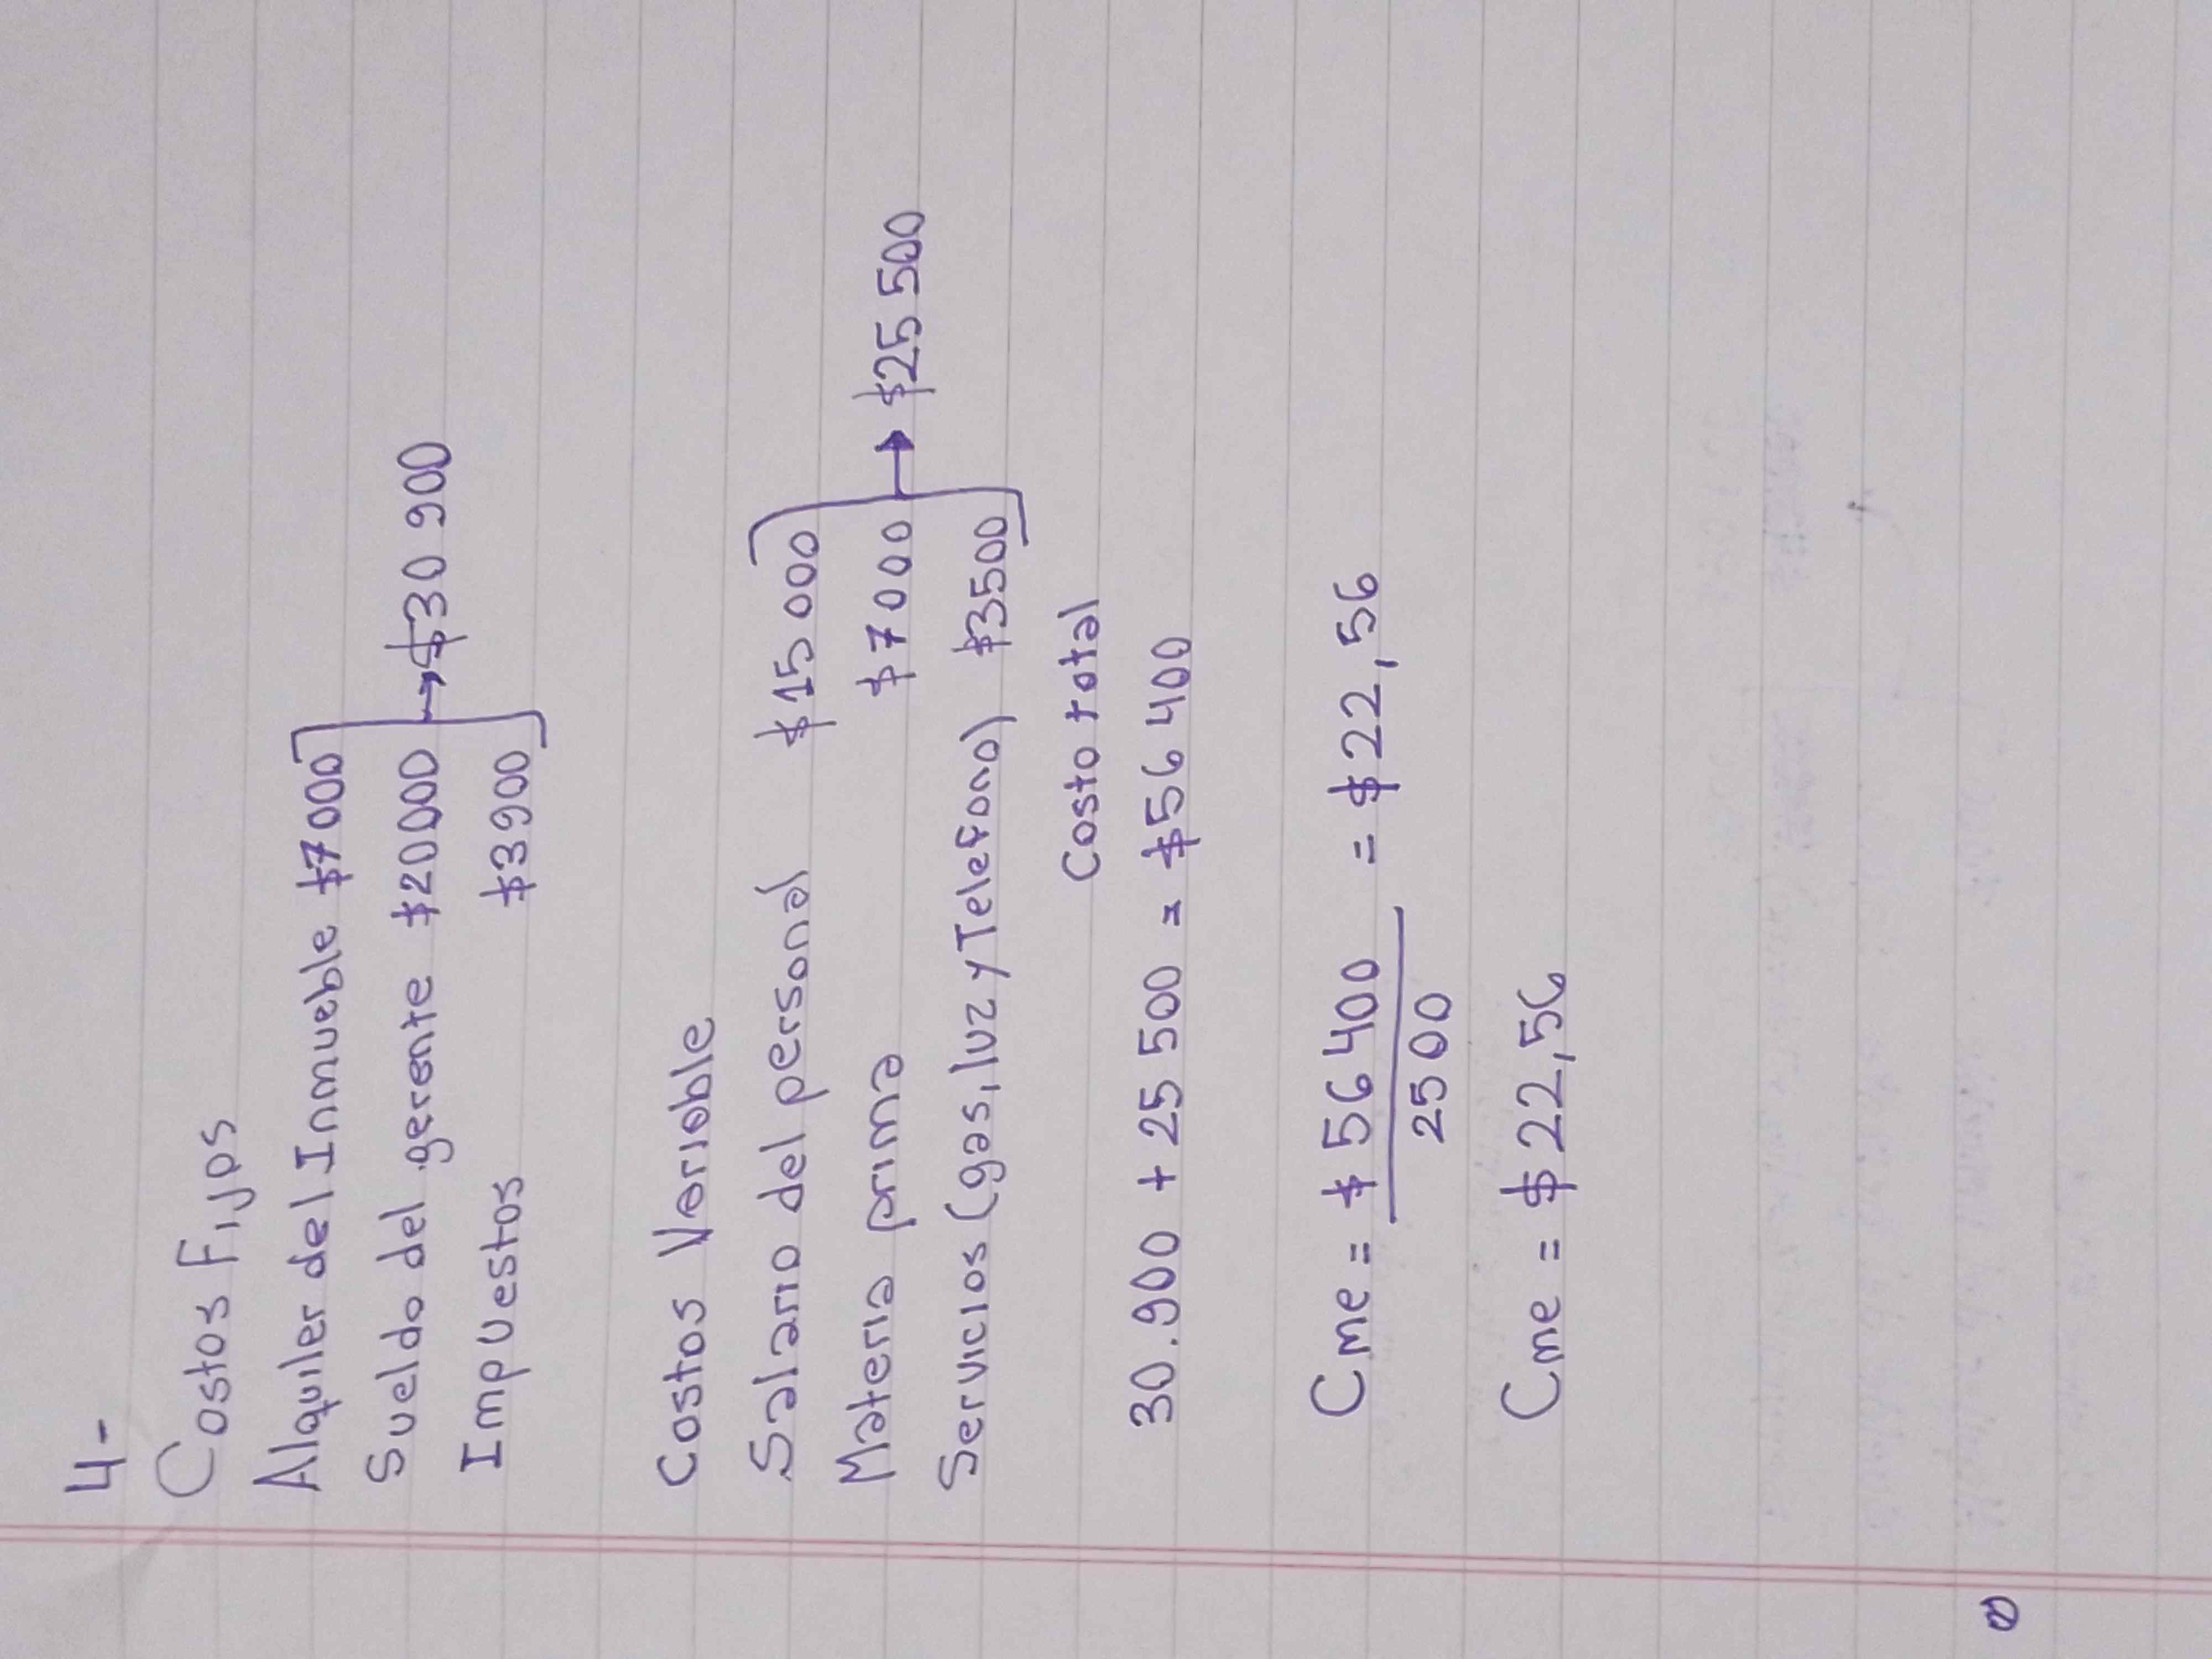 4-
Costos Fijos
Alquiler del Inmueble $7000
Sueldo del gerente $20000 → $30 900
Impuestos $3900
Costos Variable
Salario del personal $15 000
Materia prima $7000 → $25 500
Servicios (gas, luz y Telefono) $3500
Costo total
30.900 + 25 500 = $56 400
Cme = $56 400 = $22,56
2500
Cme = $22,56